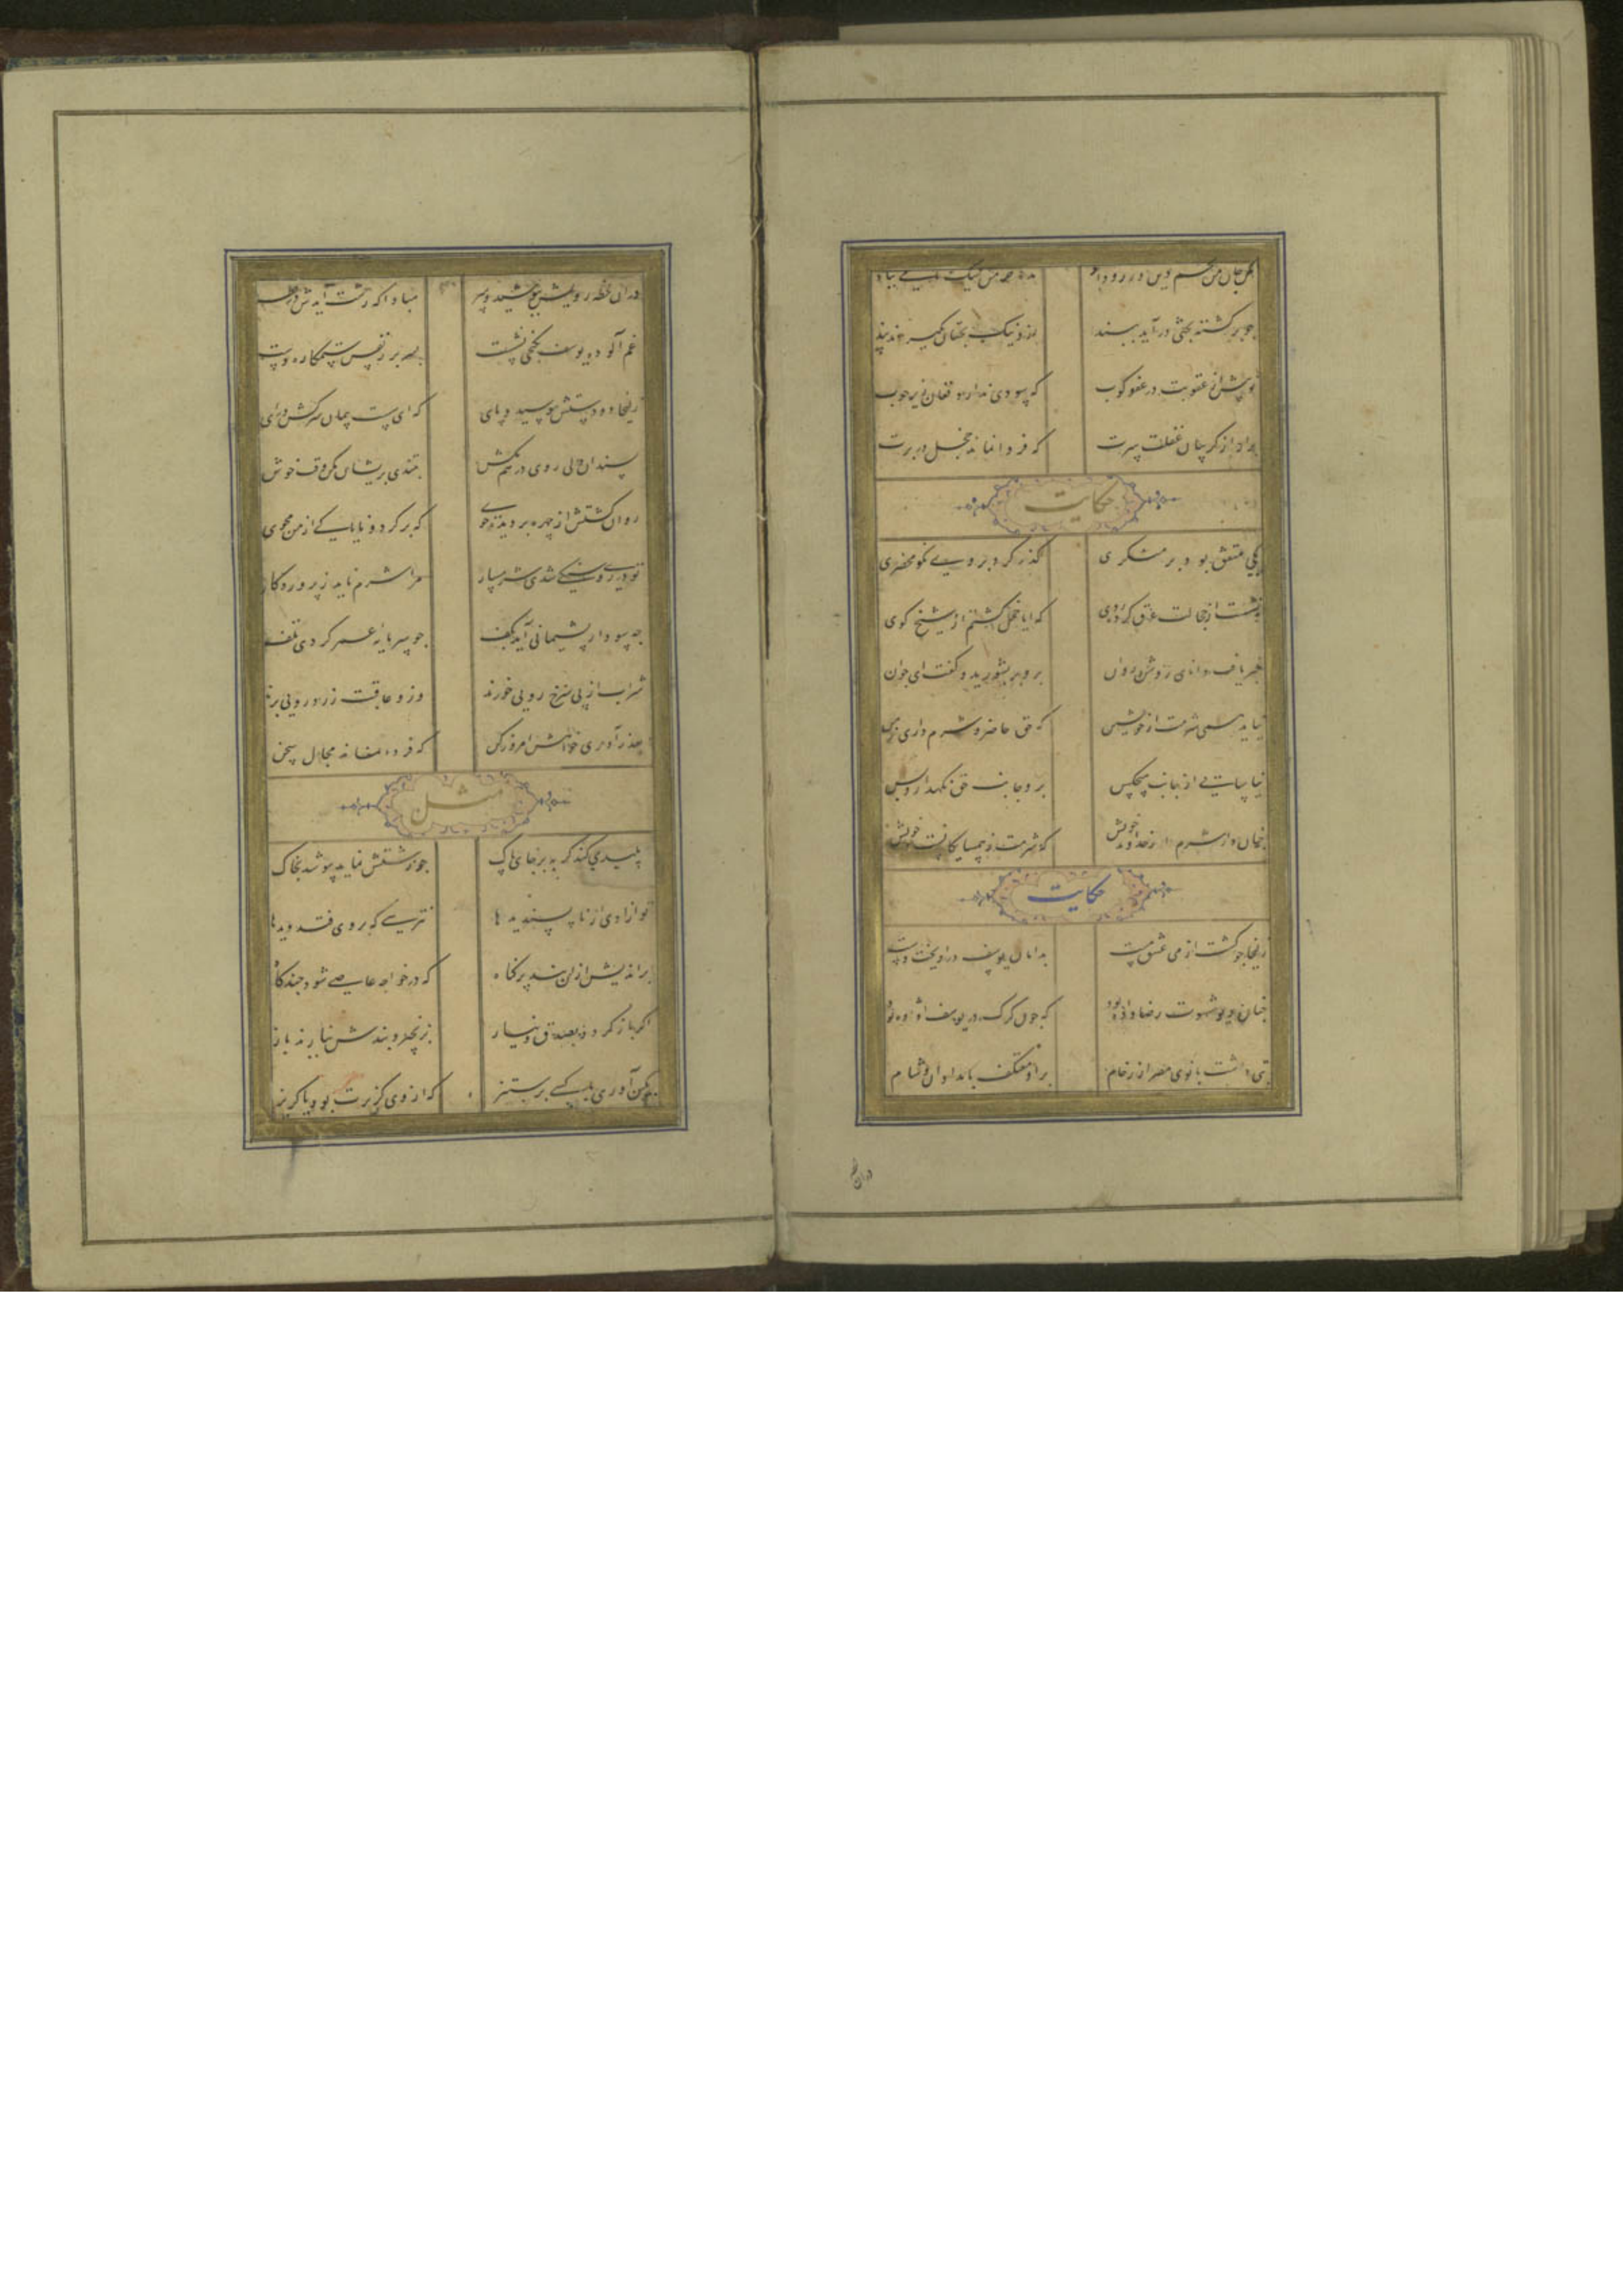 مکن جان من تخم دین ورز و داد مده خرمن نیک نامی بباد
جو برکشته بختی درآید ببند ازو نیک بختان بکیرند پند
تو پیش از عقوبت در عفو کوب که سودی ندارد فغان زیر جوب
برار از کریبان غفلت سرت که فردا نماند خجل در برت
حکایت
یکی متفق بود بر منکری کذر کرد بر وی نکو محضری
نشست از خجالت عرق کرده روی که ایا خجل کشتم از شیخ کوی
خبر یافت دانای روشن روان برو بر بشورید و کفت ای جوان
نیاید همی شرمت از خویشتن که حق حاضر و شرم داری ز من
نیاسایی از جانب هیچکس برو جانب حق نکهدار و بس
جنان دار شرم از خداوند خویش که شرمت ز همسایکانست و خویش
حکایت
زلیخا جو کشت از می عشق مست بدامان یوسف دراویخت دست
جنان دیو شهوت رضا داده بود که جون کرک در یوسف افتاده بود
بتی داشت بانوی مصر از رخام برو معتکف بامدادان و شام
دران لحظه
دران لحظه رویش بپوشید و سر مبادا که زشت آیدش در نظر
غم آلوده یوسف بکنجی نشست بسر بر ز نفس ستمکاره دست
زلیخا دو دستش ببوسید و پای که ای سست پیمان سرکش درای
بسندان دلی روی در هم مکش بتندی پریشان مکن وقت خوش
روان کشتش از دیده بر جهره جوی که برکرد و ناپاکی از من مجوی
تو در روی سنکی شدی شرمسار مرا شرم ناید ز پروردکار
جه سود ار پشیمانی آید بکف جو سرمایه عمر کردی تلف
شراب از پی سرخ رویی خورند وزو عاقبت زرد رویی برند
بعذرآوری خواهش امروز کن که فردا نماند مجال سخن
مثل
پلیدی کند کربه بر جای پاک جو زشتش نماید بپوشد بخاک
تو ازادی از ناپسندیدها نترسی که بر وی فتد دیدها
براندیش ازان بنده پر کناه که در خواجه عاصی شود جند کاه
اکر باز کردد بصدق و نیاز بزنجیر و بندش نیارند باز
بکین آوری با کسی بر ستیز که از وی کزیرت بود یا کریز